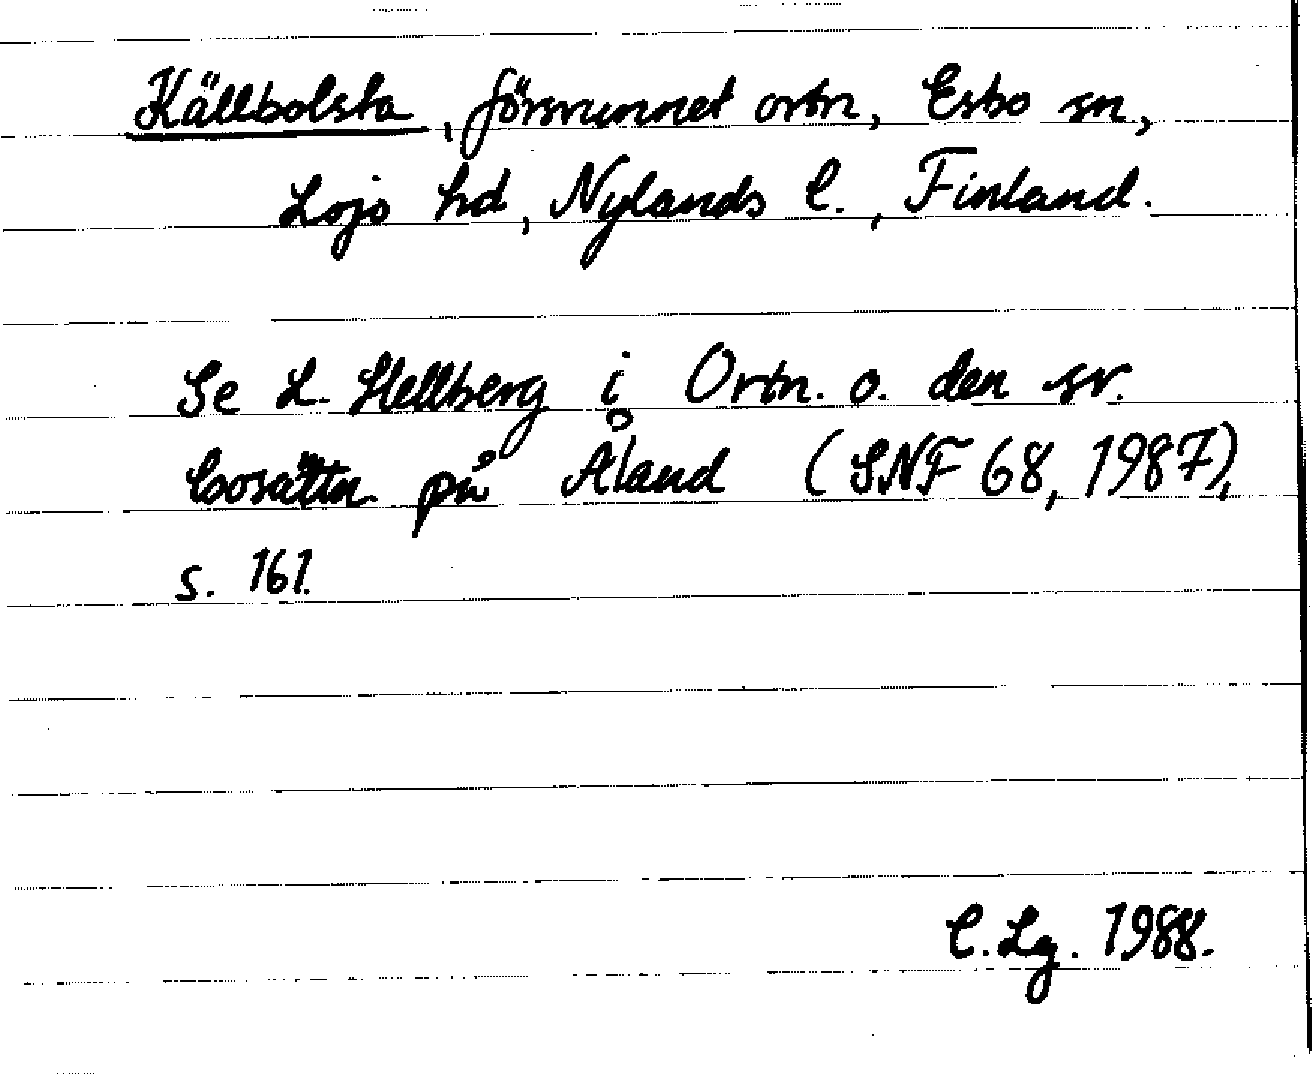 Källbolsta, försvunnet ortn, Esbo sn,
Lojo hd, Nylands l., Finland.
Se L. Hellberg i Ortn. o. den sv.
bosättn. på Åland (SNF 68, 1987),
s. 161.
C. Lg. 1988.